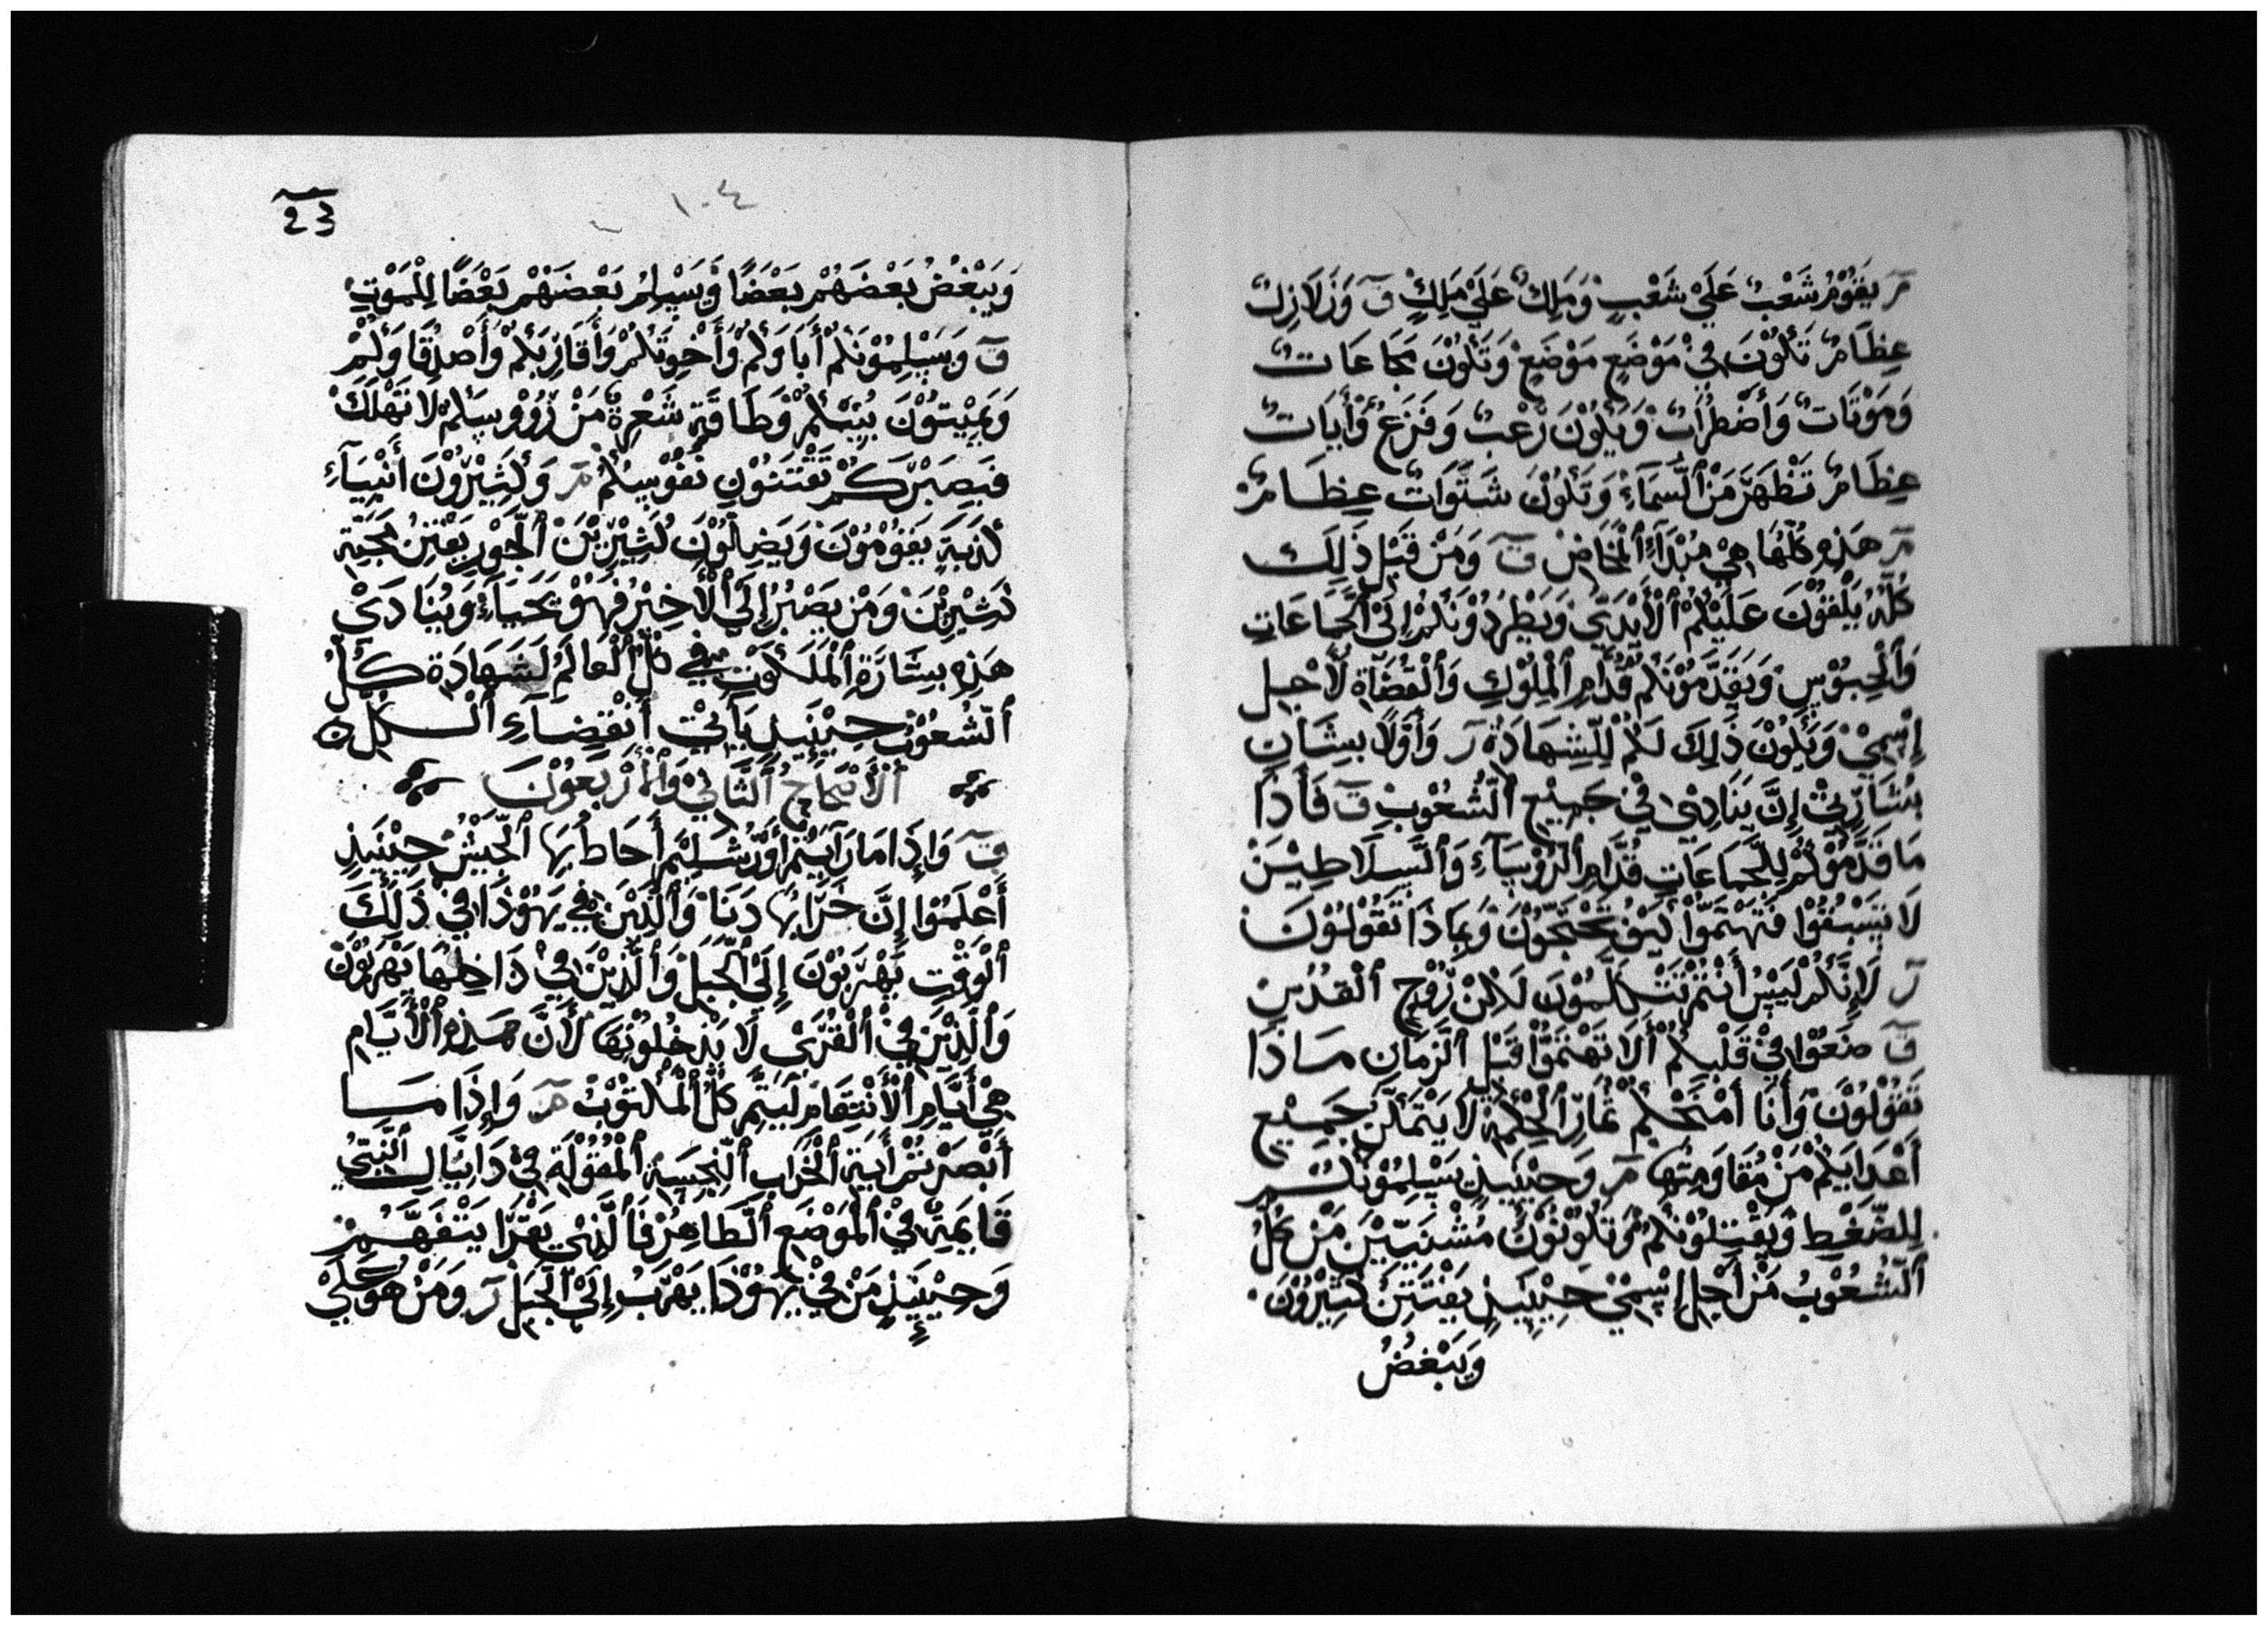 مر يَقُوْمُ شَعْبٌ عَلَيْ شَعْبٍ وَمَلِكٌ عَلَيْ مَلِكٍ ق وَزَلَازِلٌ
عِظَامٌ تَكُوْنَ فِيْ مَوْضَعٍ مَوْضَعٍ وَتَكُوْنَ مَجَاعَاتٌ
وَمَوْتَاتٌ وَأَضْطِرَاتٌ وَيَكُوْنَ رُعْبٌ وَفَزَعٌ وَأَيَاتٌ
عِظَامٌ تَظْهَرَ مَنْ ٱلسَّمَآءِ وَتَكُوْنَ شَتَوَاتٌ عِظَامٌ
مر هَذِهِ كُلُّهَا هِيْ مُبْدَآءُ ٱلْمَخَاضْ ق وَمَنْ قَبْلِ ذَلِكَ
كُلِّهِ يَلْقَوْنَ عَلَيْكُمْ ٱلْأَيْدِيْ وَيَطْرِدُوْنَكُمْ إِلَيْ ٱلْجَمَاعَاتِ
وَٱلْحِبُوْسِ وَيُقَدِّمُوْنَكُمْ قُدَّامِ ٱلْمِلُوْكِ وَٱلْقُضَآةِ لَأَجْلِ
إِسْمِيْ وَيَكُوْنَ ذَلِكَ لَكُمْ لِلشِّهَادَةْ ر وَأَوَّلًا بِشَانِ
بِشَارَتِيْ إِنَّ يَنَادِيْ فِيْ جَمِيْعِ ٱلشُّعُوْبِ ق فَأَذَا
مَا قَدَّمُوْكُمْ لِلْجَمَاعَاتِ قُدَّامِ ٱلرُّوْسَآءِ وَٱلسَّلَاطِيْنَ
لَا تَسْبُقُوْا فَتَهْتَمُّوْا كَيْفَ تَحْتَجُّوْنَ وَبِمَاذَا تَقُوْلُوْنَ
ر لَإِنَّكُمْ لَيْسُ أَنْتُمْ تَتَكَلَّمُوْنَ لَكِنْ رُوْحِ ٱلْقُدُسِ
ق ضَعُوْا فِيْ قَلْبِكُمْ أَلَا تَهْتَمُّوْا قَبْلِ ٱلزَّمَانِ مَاذَا
تَقُوْلُوْنَ وَأَنَا أَمْنَحْكُمْ ثِمَارِ ٱلْحِكْمَةْ ٱلَّتِيْ لَا يَتَمَكَّنَ جَمِيْعِ
أَعْدَايَكُمْ مَنْ مُقَاوَمِتِهَا مر وَحِيْنَيِذٍ يَسْلِمُوْنَكُمْ
لِلضَّغْطِ وَيَقْتِلُوْنَكُمْ وَتَكُوْنُوْنَ مُشْنَيِيْنَ مَنْ كُلِّ
ٱلشُّعُوْبُ مَنْ أَجْلِ إِسْمِيْ حِيْنَيِذٍ يَفْتَتِنَ كَثِيْرُوْنَ
وَيَبْغُضُ
١٠٤
23
وَيَبْغُضُ بَعْضَهُمْ بَعْضًا وَيَسْلِمُ بَعْضَهُمْ بَعْضًا لِلْمَوْتِ
ق وَيَسْلِمُوْنَكُمْ أَبَاوَكُمْ وَأَخْوِتَكُمْ وَأَقَارِبَكُمْ وَأَصْدِقَاوَكُمْ
وَيَمِيْتُوْنَ مِنْكُمْ وَطَاقَةِ شَعْرِةٍ مَنْ رُوُوْسِكُمْ لَا تَهْلَكَ
فَبِصَبْرَكُمْ تَقْتَنُوْنِ نَفُوْسِكُمْ مر وَكَثِيْرُوْنَ أَنْبِيَآءِ
كَذَبَةٍ يَقُوْمُوْنَ وَيَضِلُّوْنَ كَثِيْرِيْنَ ٱلْجَوْرِ يَفْتِنُ مَحَبَّةِ
كَثِيْرِيْنَ وَمَنْ يَصْبُرُ إِلَيْ ٱلْأَخِيْرُ فَهُوْ يَحَيَآءُ وَيُنَادَيْ
هَذِهِ بِشَارَةِ ٱلْمَلَكُوْتِ فِيْ كُلِّ ٱلْعَالَمُ لَشَهَادَةِ كُلِّ
ٱلشُّعُوْبْ حِيْنَيِذٍ يَأْتِيْ أَنْقِضَآءِ ٱلْكُلِّ
ٱلْأَصْحَاحُ ٱلثَّانِيْ وَٱلْأَرْبَعُوْنَ
ق وَإِذَا مَا رَآيْتُمْ أَوْرَشَلِيْمَ أَحَاطَ بِهَا ٱلْجَيْشُ حِيْنَيِذٍ
أَعْلَمُوْا إِنَّ خَرَابُهَا دَنَا وَٱلَّذِيْنَ فِيْ يَهُوْذَا فِيْ ذَلِكَ
ٱلْوَقْتِ يَهْرَبُوْنَ إِلَيْ ٱلْجَبَلِ وَٱلَّذِيْنَ فِيْ دَاخِلِهَا يَهْرَبُوْنَ
وَٱلَّذِيْنَ فِيْ ٱلْقُرَيْ لَا يَدْخُلُوْنِهَا لَأَنَّ هَذِهِ ٱلْأَيَّامِ
هِيْ أَيَّامِ ٱلْأَنْتِقَامِ لَيَتِمَّ كُلَّ ٱلْمَكْتُوْبْ مر وَإِذَا مَا
أَبْصَرْتُمْ أَيَةِ ٱلْخَرَابِ ٱلنَّجِسَةِ ٱلْمَقُوْلَةِ فِيْ دَانِيَالِ ٱلنَّبِيُّ
قَايِمَةٍ فِيْ ٱلْمَوْضَعِ ٱلطَّاهِرْ فَٱلَّذِيْ يَقْرَا يَتْفَهَّمُ
وَحِيْنَيِذٍ مَنْ فِيْ يَهُوْذَا يَهْرَبُ إِلَيْ ٱلْجَبَلِ ر وَمَنْ هُوَ عَلَيْ